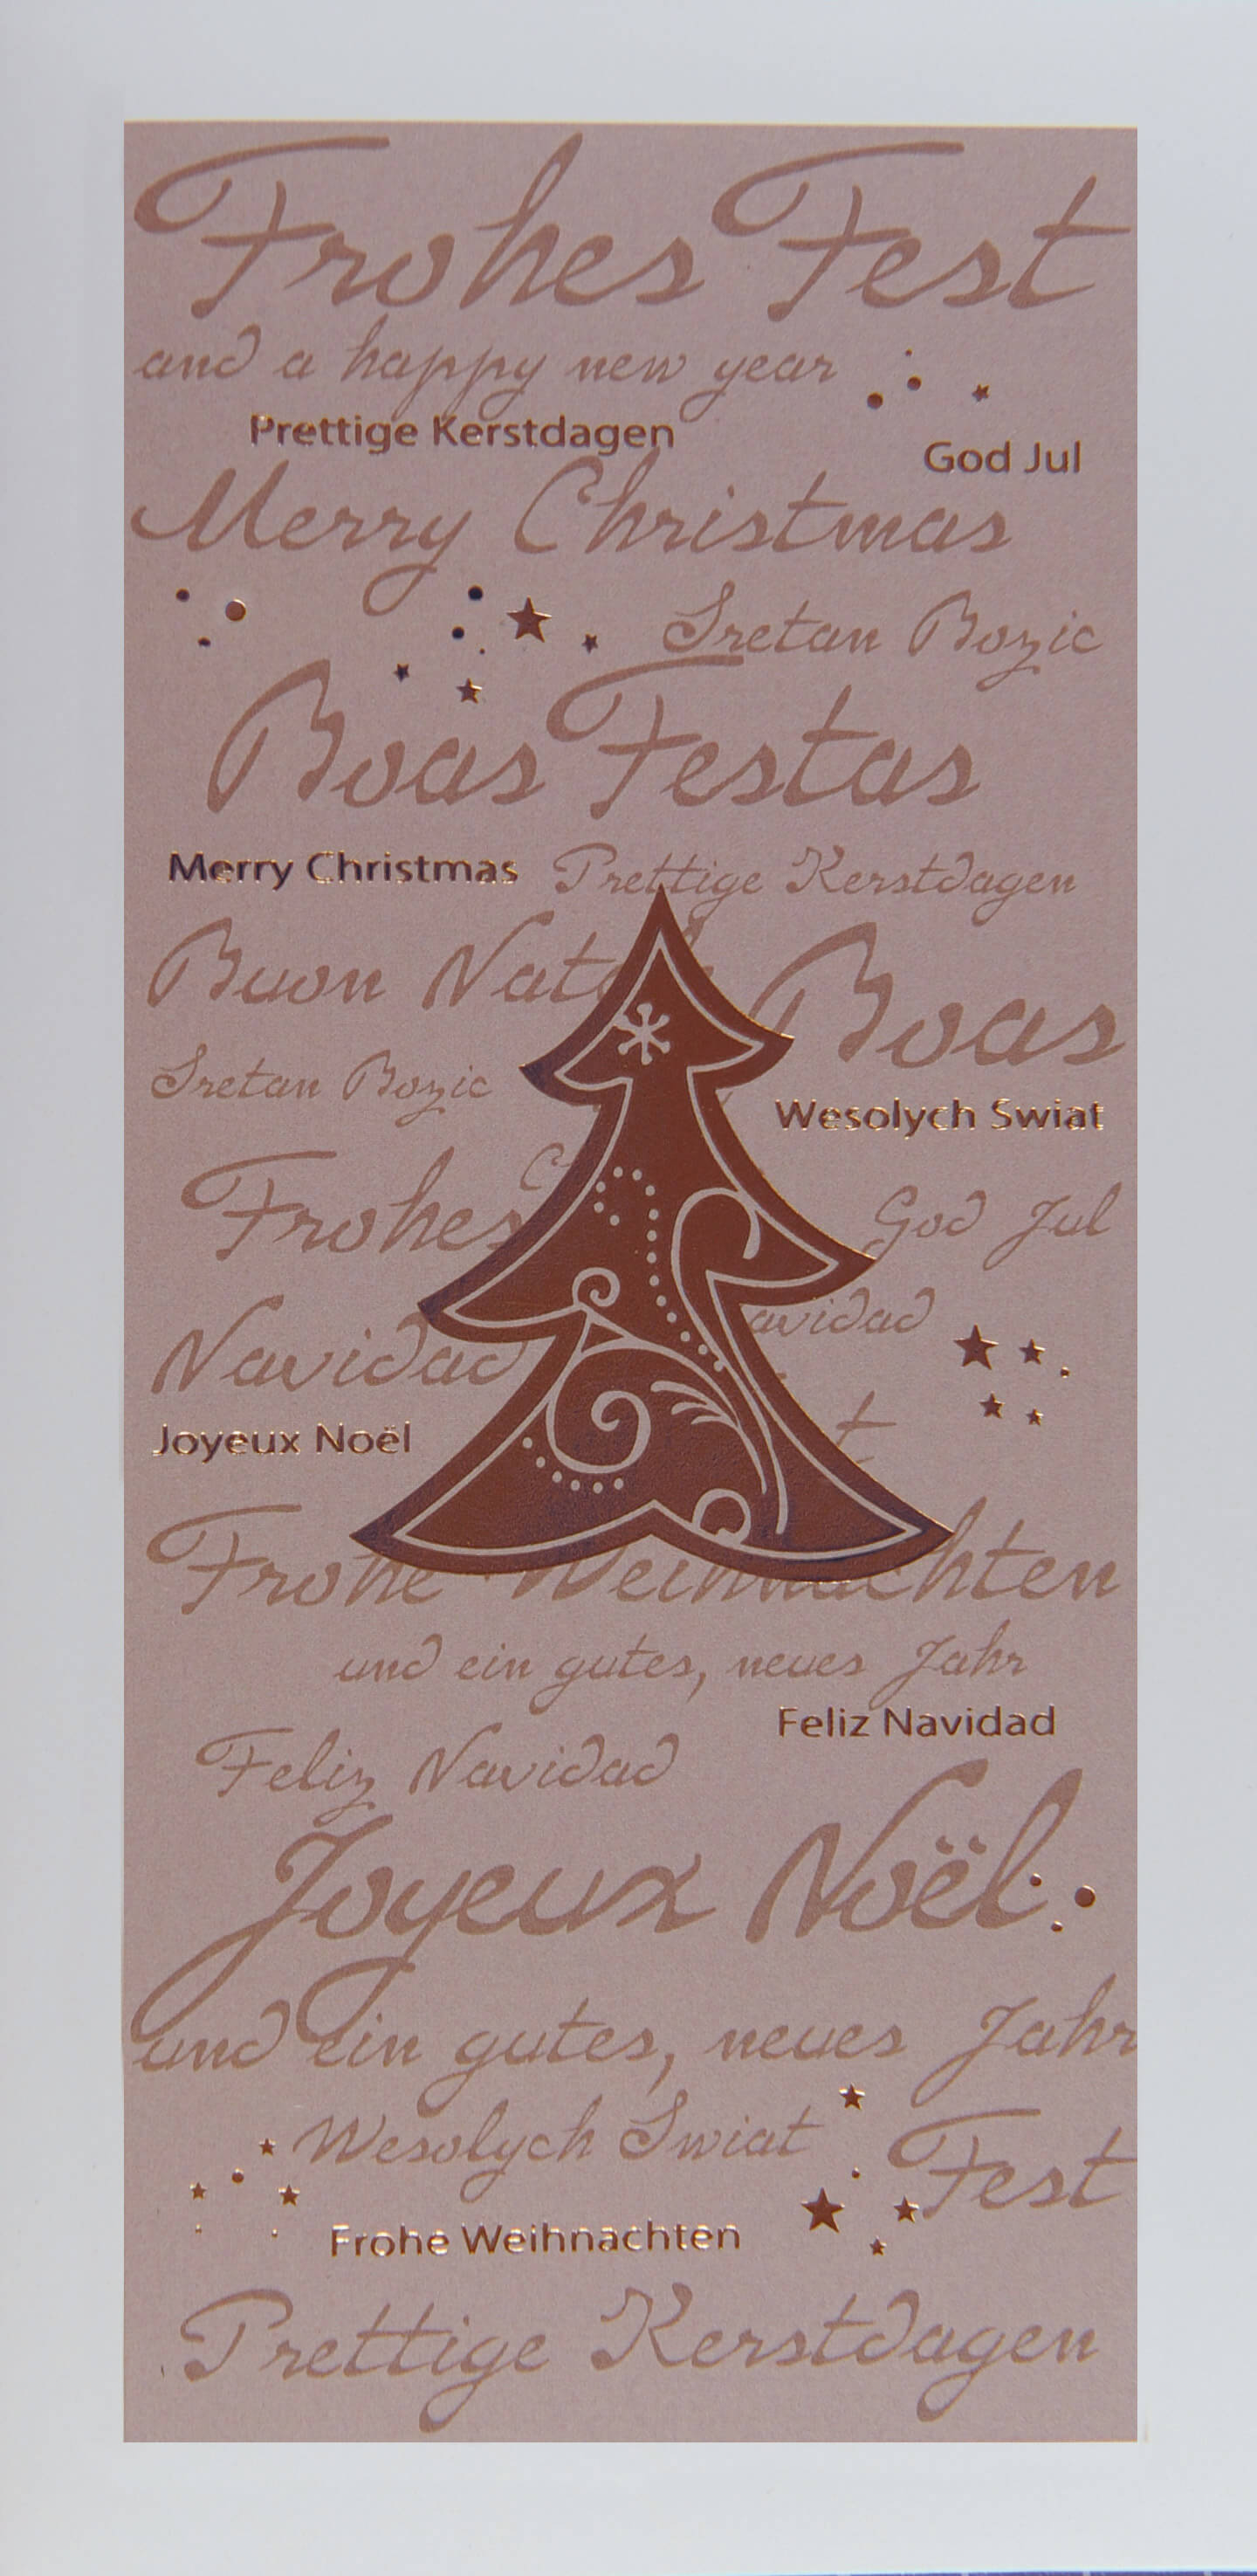 Frohes Fest
and a happy new year
Prettige Kerstdagen
God Jul
Merry Christmas
Sretan Bozic
Boas Festas
Merry Christmas Prettige Kerstdagen
Buon
Boas
Sretan Bozic
Wesolych Swiat
Frohes
God Jul
Navidad
avidad
Joyeux Noël
t
Frohe Weihnachten
und ein gutes, neues Jahr
Feliz Navidad
Feliz Navidad
Joyeux Noël
und ein gutes, neues Jahr
Wesolych Swiat
Fest
Frohe Weihnachten
Prettige Kerstdagen